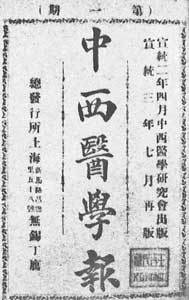 （第一期）
宣統二年四月中西醫學研究會出版
宣統三年七月再版
中西醫學報
總發行所上海
無錫丁寓